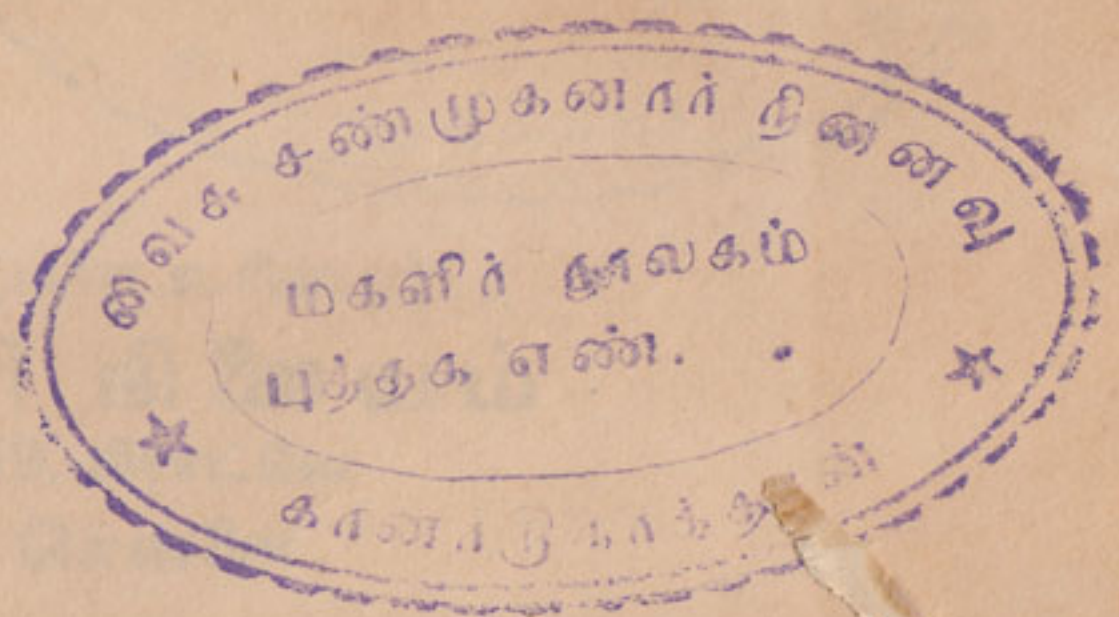 வை சு சண்முகனார் நினைவு
மகளிர் நூலகம்
புத்தக எண்.
கானாடுகாத்தான்